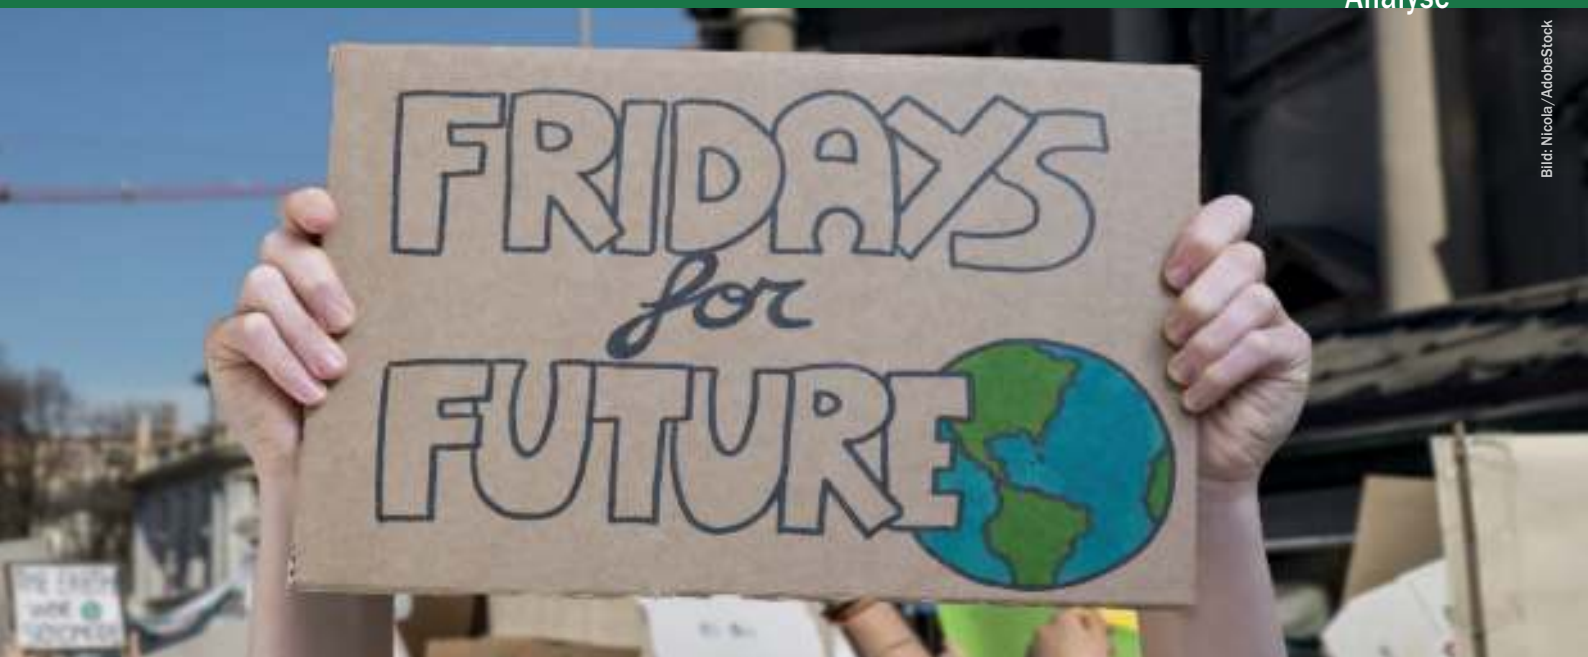 Analyse
Bild: Nicola/AdobeStock
FRIDAYS
for
FUTURE
THE EARTH